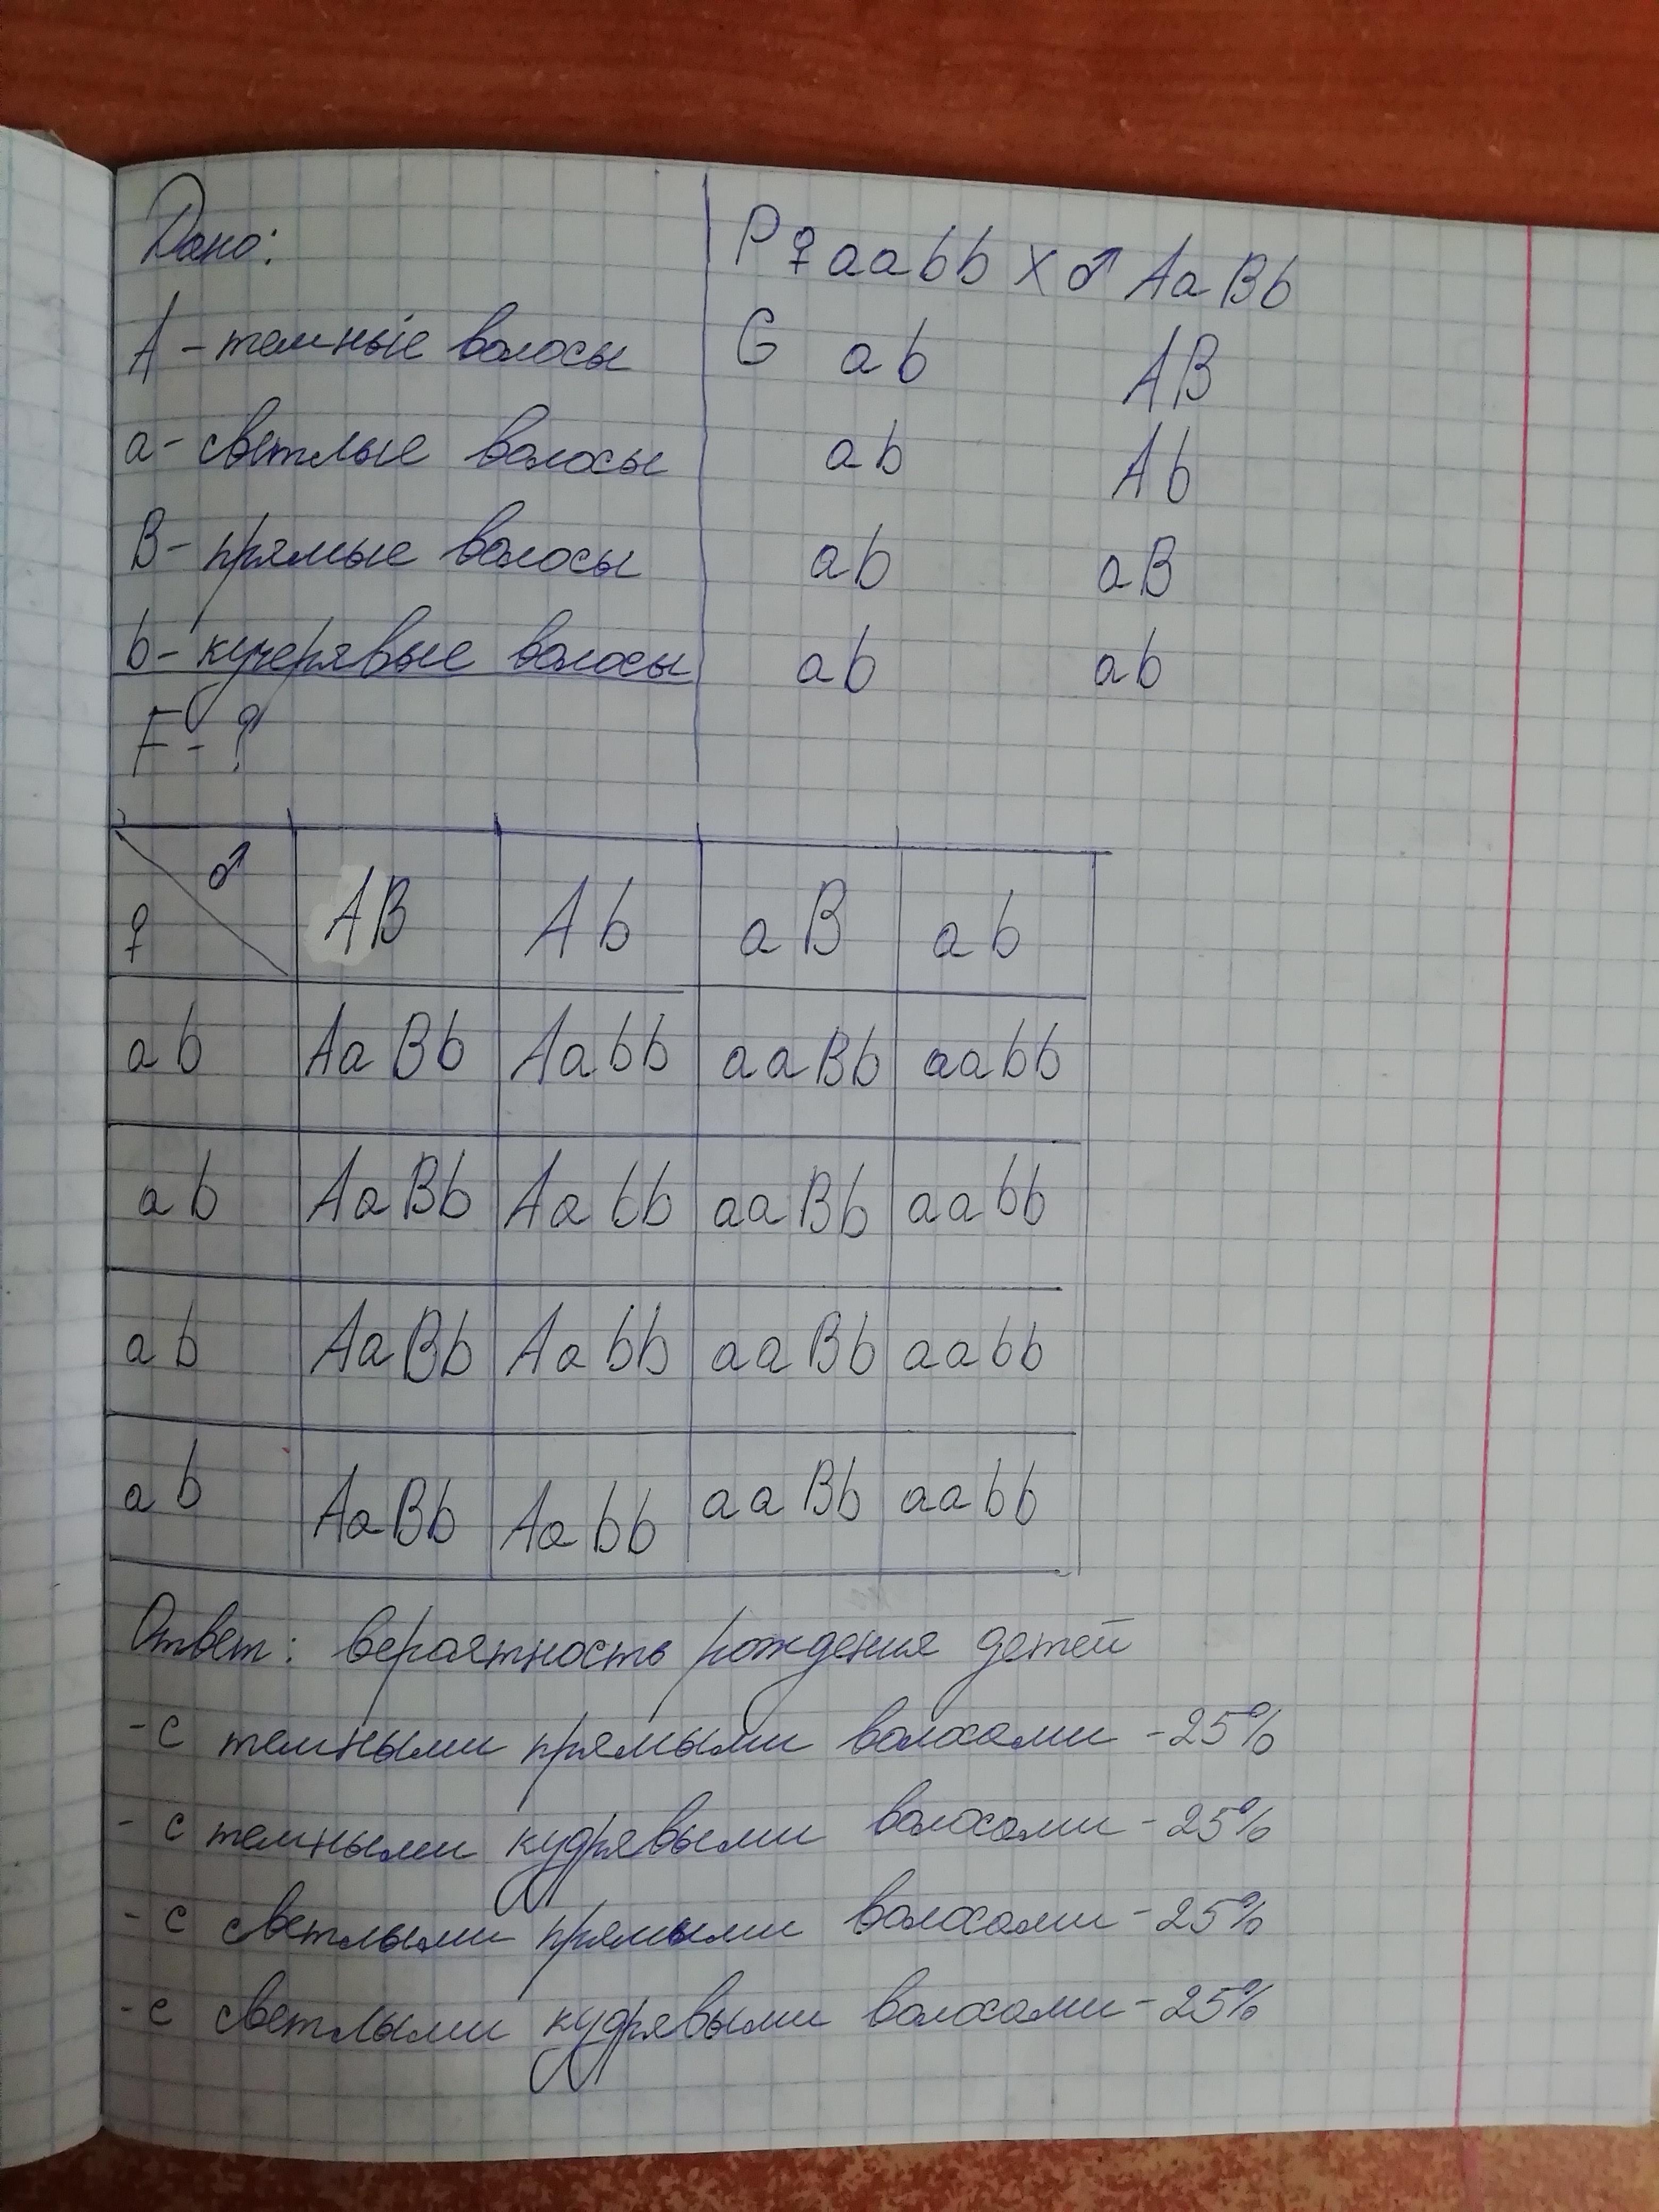 Дано:
А - темные волосы
а - светлые волосы
В - прямые волосы
b - кучерявые волосы
F - ?
P ♀ aabb x ♂ AaBb
G ab AB
ab Ab
ab aB
ab ab
♂
♀ AB Ab aB ab
ab AaBb Aabb aaBb aabb
ab AaBb Aabb aaBb aabb
ab AaBb Aabb aaBb aabb
ab AaBb Aabb aaBb aabb
Ответ: вероятность рождения детей
- с темными прямыми волосами - 25%
- с темными кудрявыми волосами - 25%
- с светлыми прямыми волосами - 25%
- с светлыми кудрявыми волосами - 25%